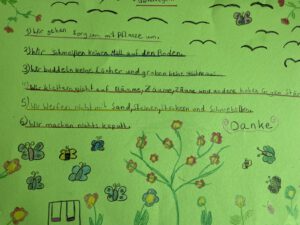 1) Wir gehen sorgsam mit Pflanze um.
2) Wir schmeißen keinen Müll auf den Boden.
3) Wir buddeln keine Löcher und graben keine
4) Wir klettern nicht auf Bäume, Zäune und andere hohen
5) Wir werfen nicht mit Sand, Steinen, Stöckern und Schneebällen.
6) Wir machen nichts kaputt.
Danke